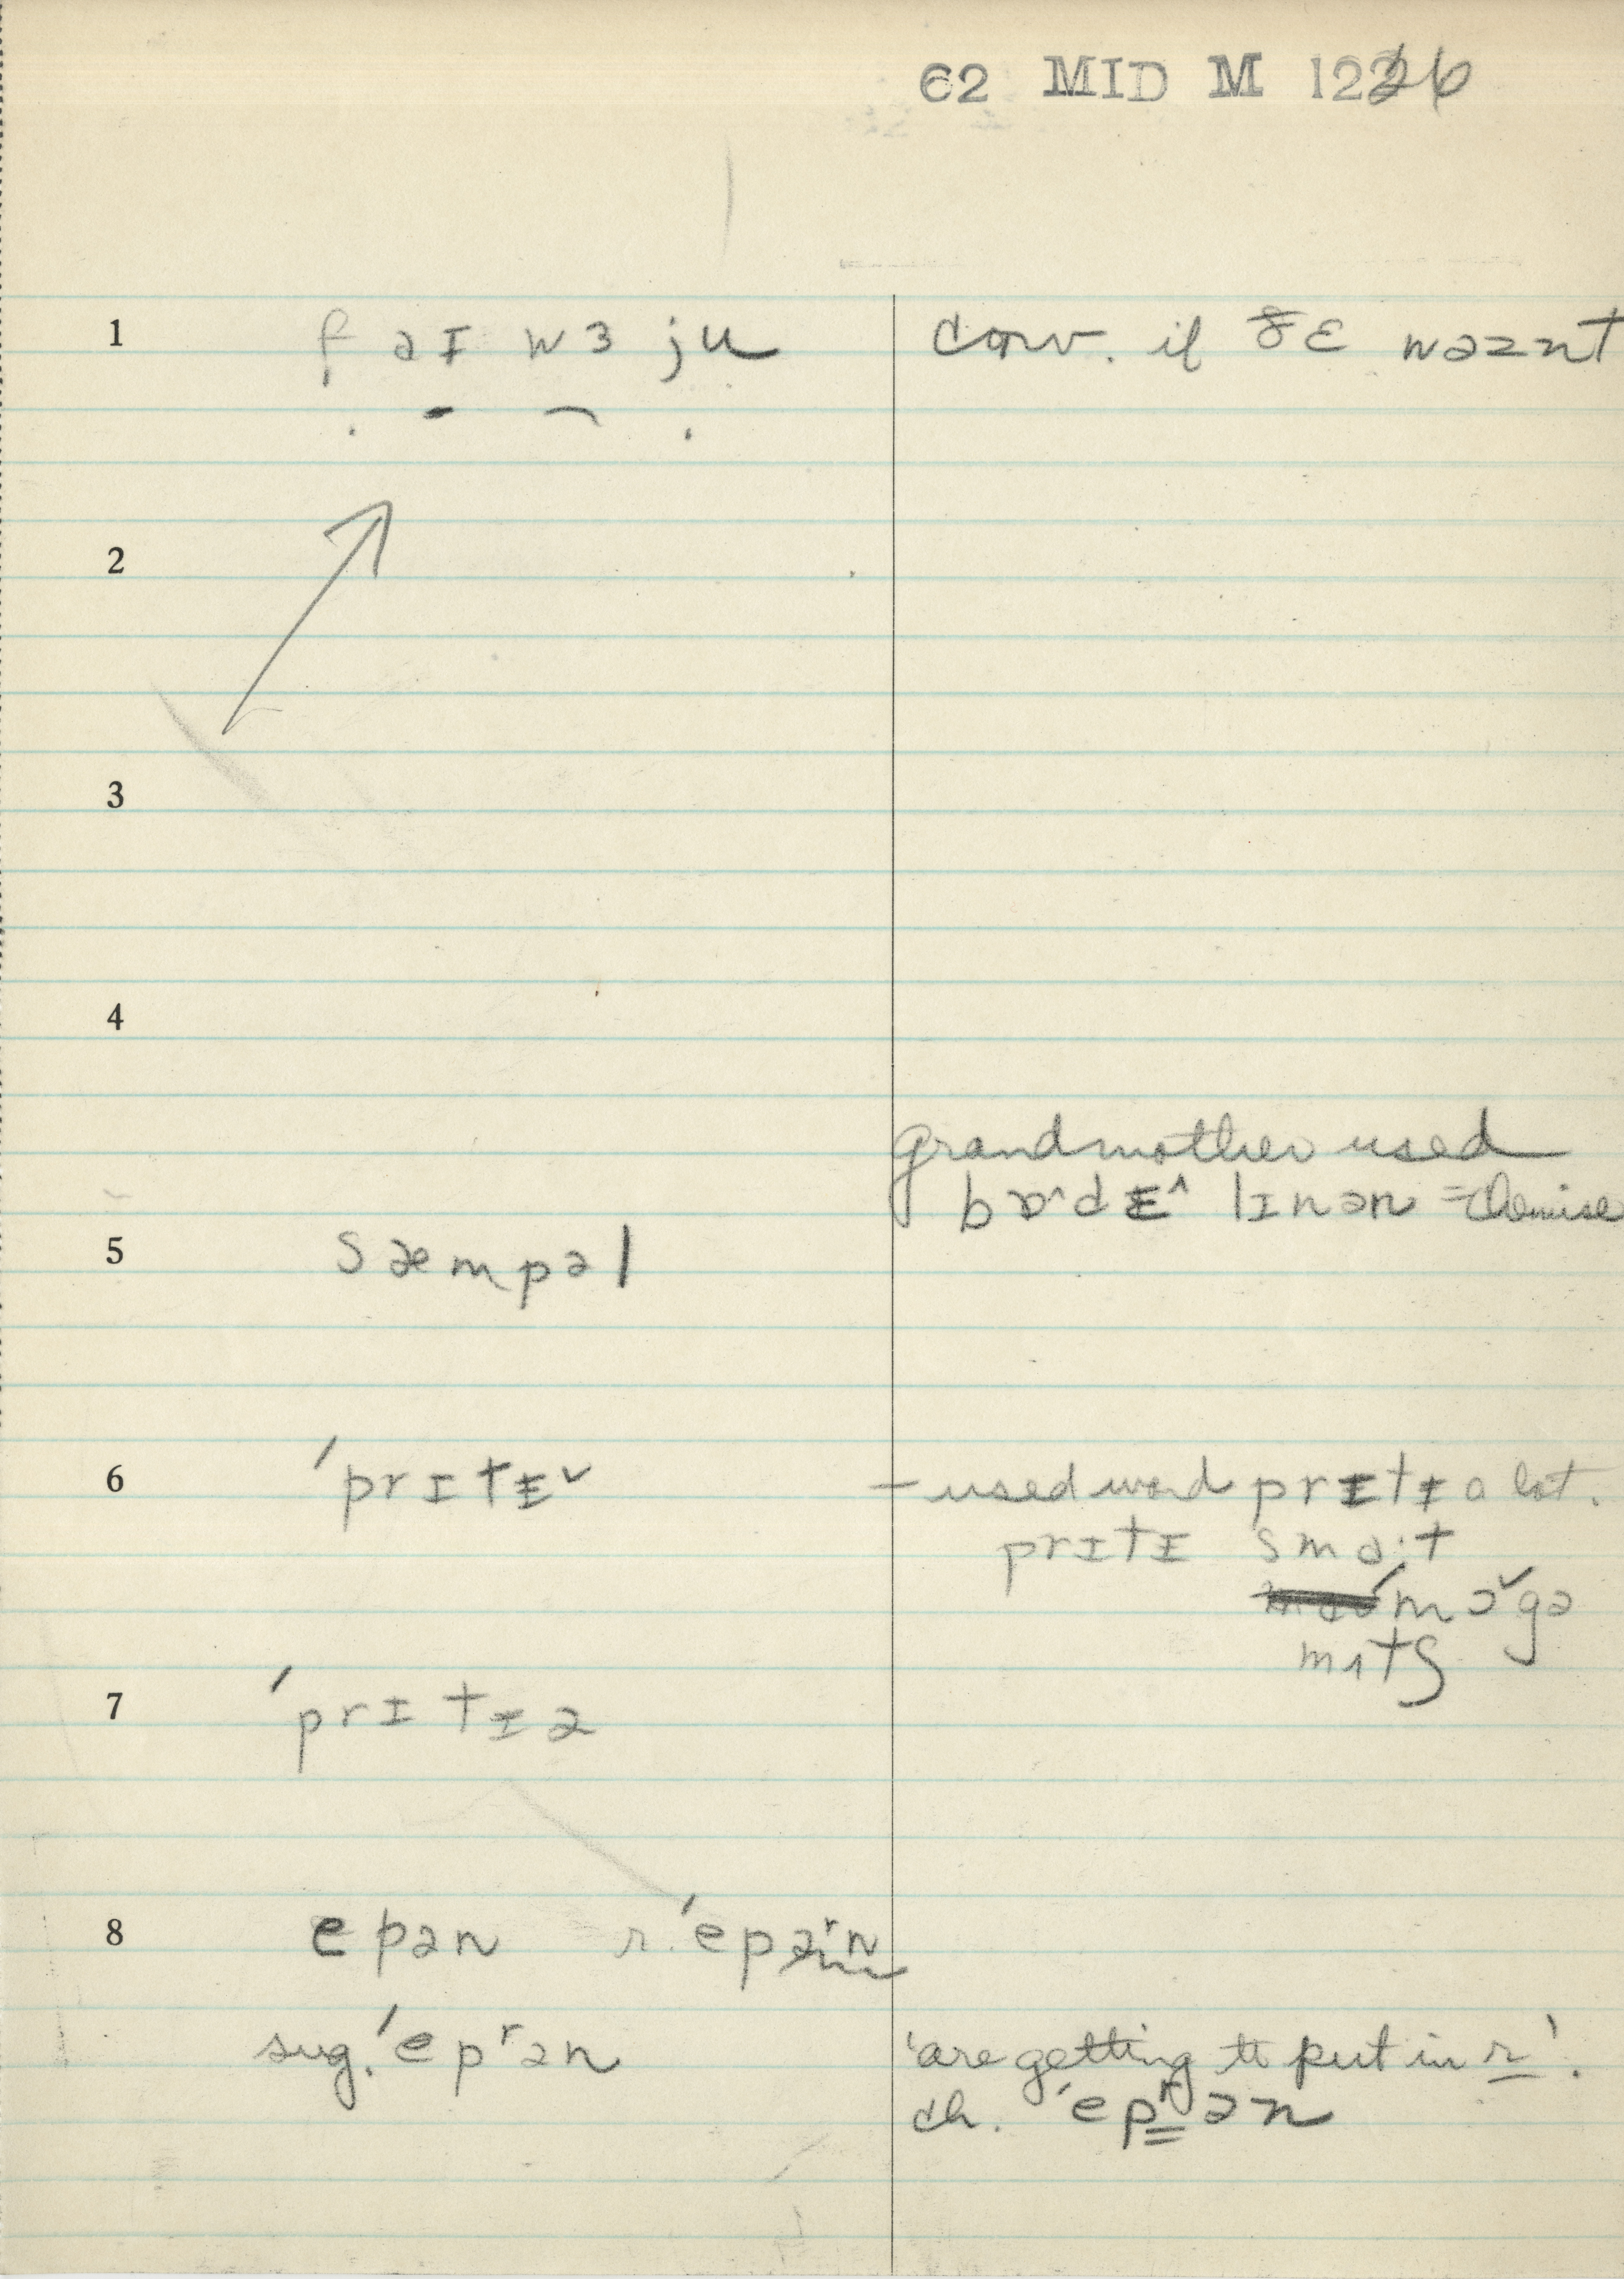 62 MID M 1226
1 f əɪ w ɜ ju conv. if ðɛ wəznt
2
3
4
grandmother used
lɪnən = chemise
5 sæmpəl
6 ˈprɪtɪ˅ – used word prɪtɪ a lot.
prɪtɪ smɑ:t
7 ˈprɪtɪə
8 epən r. ˈepəʳn
sug. ˈepʳən 'are getting to put in r'.
ch. ˈepʳən